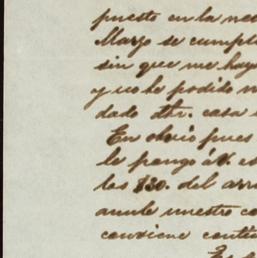 puesto en la nec
Marzo se cumpli
sin que me hay
y no he podido n
dado dhr. casa
En obvio pues
le pongo á V. es
los $30. del arr
anule nuestro co
conviene conti